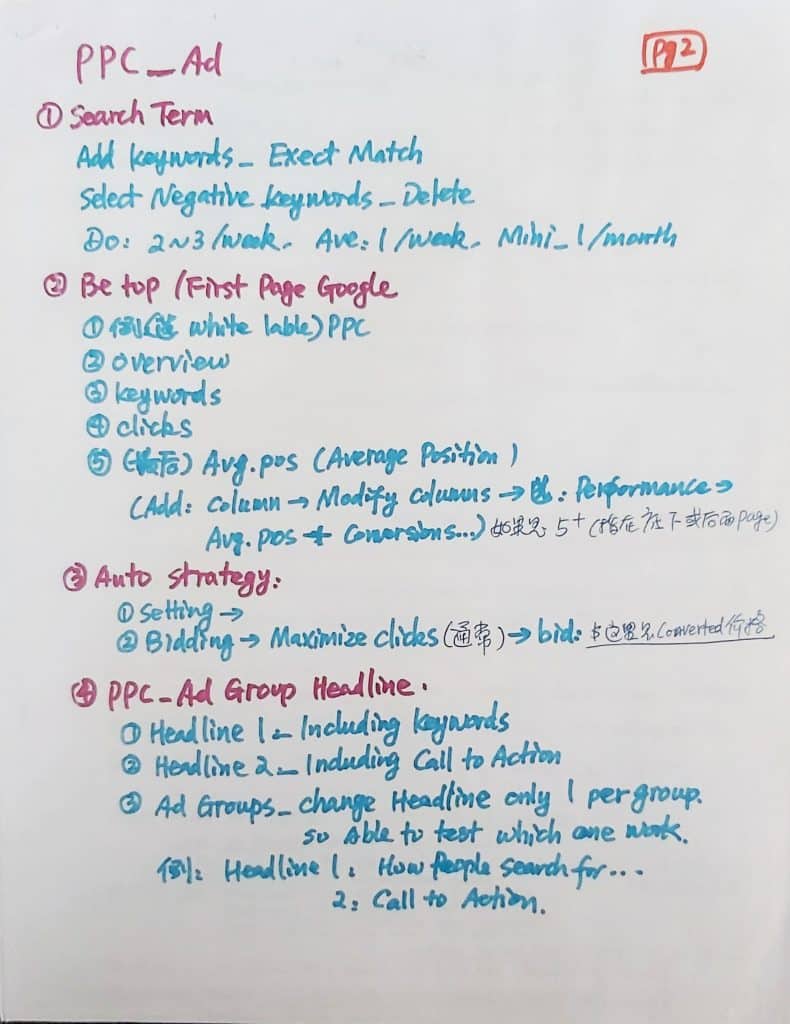 PPC_Ad
Pg2
① Search Term
Add keywords_ Exect Match
Select Negative keywords_ Delete
Do: 2~3/week. Ave: 1/week. Mini_1/month
② Be top /First Page Google
① 例( white lable) PPC
② overview
③ keywords
④ clicks
⑤ Avg.pos (Average Position)
(Add: Column → Modify columns → : Performance →
Avg.pos + Conversions...) 如果是 5+ (指在 下或后面page)
③ Auto strategy:
① Setting →
② Bidding → Maximize clicks (通常) → bid: Converted价格
④ PPC_Ad Group Headline.
① Headline 1_ Including keywords
② Headline 2_ Including Call to Action
③ Ad Groups_ change Headline only 1 per group.
so Able to test which one work.
例: Headline 1: How People search for...
2: Call to Action.